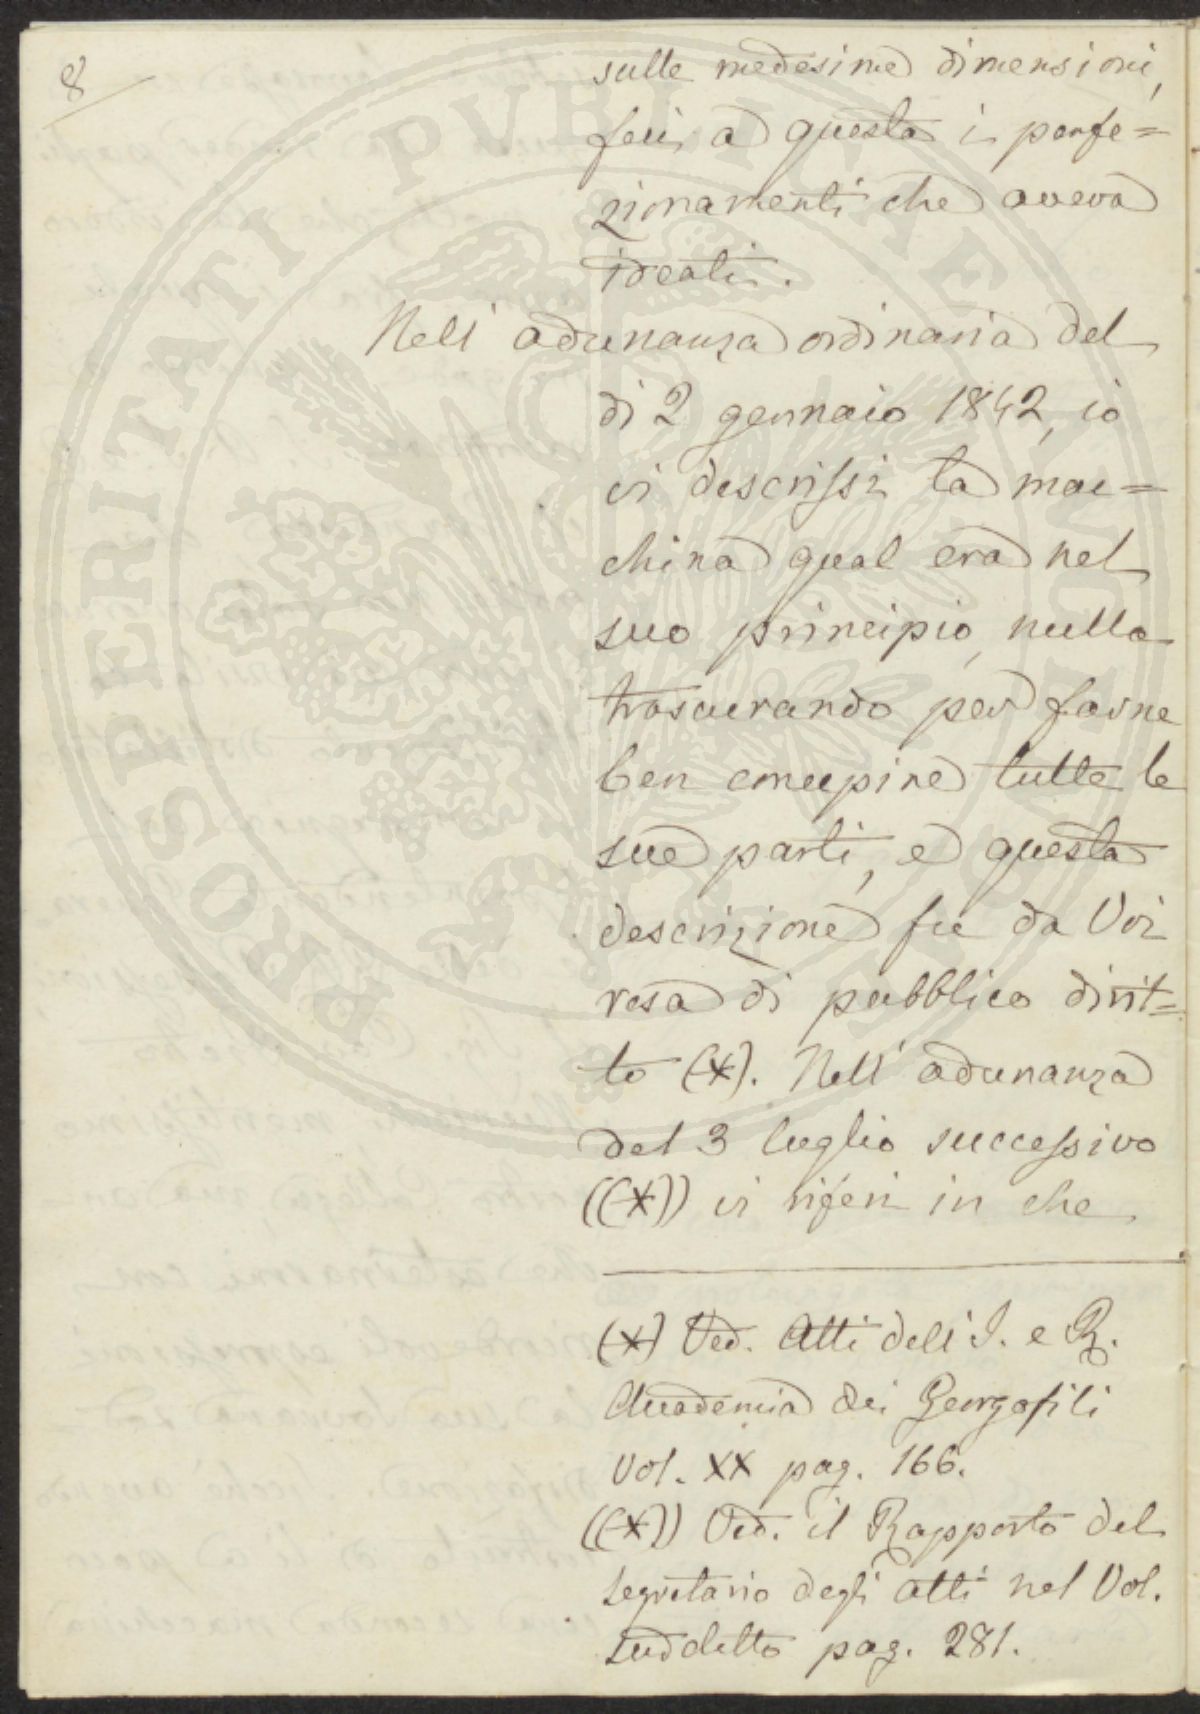 8
sulle medesime dimensioni,
feci a questa i perfe=
zionamenti che aveva
ideati.
Nell' adunanza ordinaria del
dì 2 gennaio 1842, io
vi descrissi la mac=
china qual era nel
suo principio, nulla
trascurando per farne
ben concepire tutte le
sue parti, e questa
descrizione fu da Voi
resa di pubblico dirit=
to (*). Nell' adunanza
del 3 luglio successivo
((*)) vi riferii in che
(*) Ved. Atti dell' I. e R.
Accademia dei Georgofili
Vol. XX pag. 166.
((*)) Ved. il Rapporto del
segretario degli atti nel Vol.
suddetto pag. 281.
PROSPERITATI PUBLICAE AUGENDAE